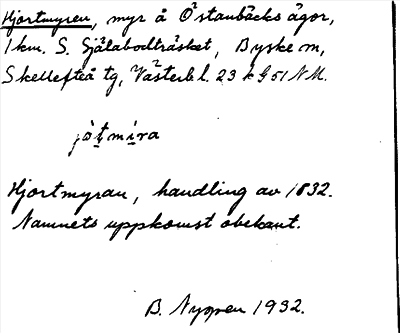 Hjortmyren, myr å Östanbäcks ägor,
1 km. S. Själabodträsket, Byske sn,
Skellefteå tg, Västerb l. 23 k G 51 N M.
jòt̬mìra
Hjortmyran, handling av 1832.
Namnets uppkomst obekant.
B. Nygren 1932.